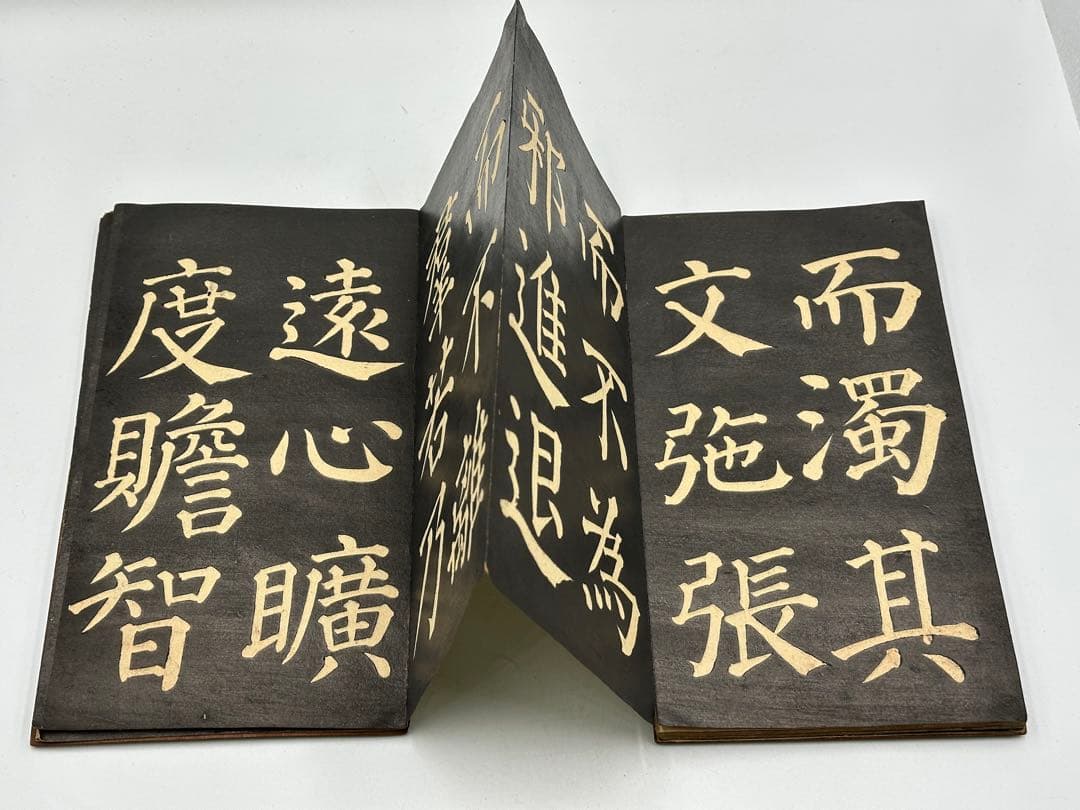 而濁其
文㢮張
而不為
邪進退
而不離
羣若乃
遠心曠
度贍智